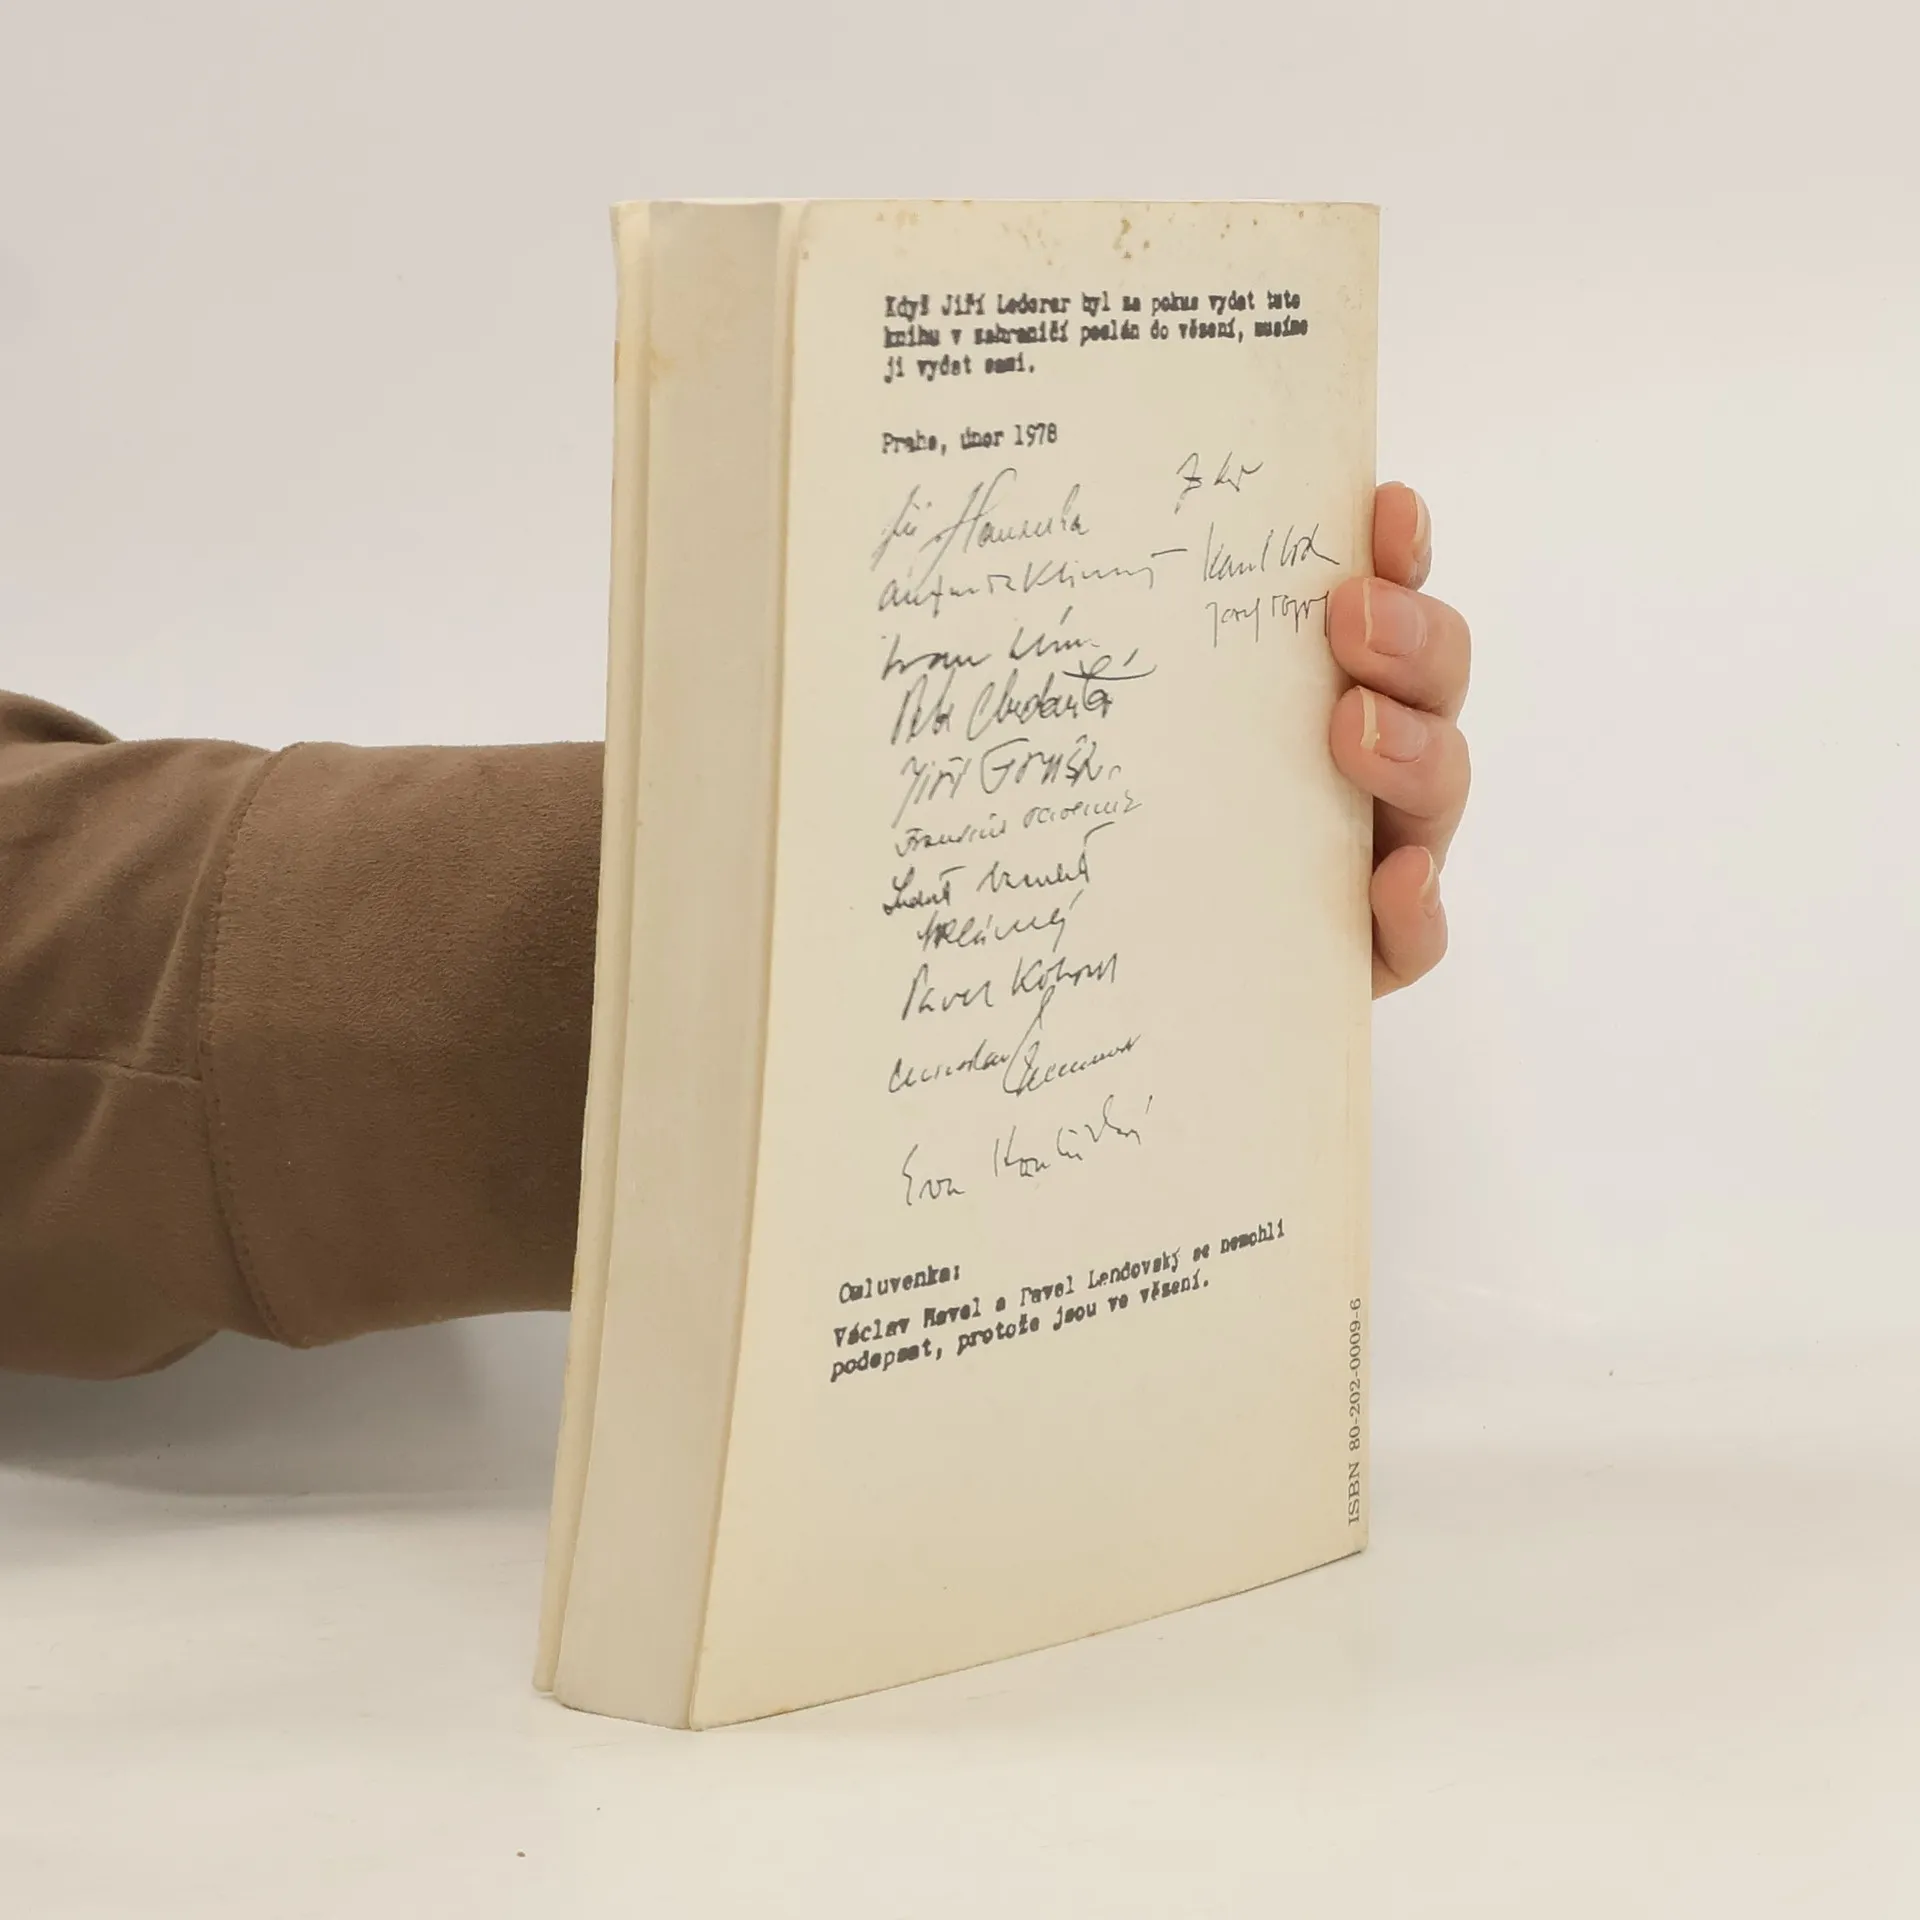 Když Jiří Lederer byl za pokus vydat tuto
knihu v zahraničí poslán do vězení, musíme
ji vydat sami.
Praha, únor 1978
Jiří Hanzelka
Klimu
Ivan Klíma
Petr Chudožilov
Jiří Gruša
František Pavlíček
Ludvík Vaculík
Pavel Kohout
Eva Kantůrková
Karol
Josef Topol
Omluvenka:
Václav Havel a Pavel Landovský se nemohli
podepsat, protože jsou ve vězení.
ISBN 80-202-0009-6